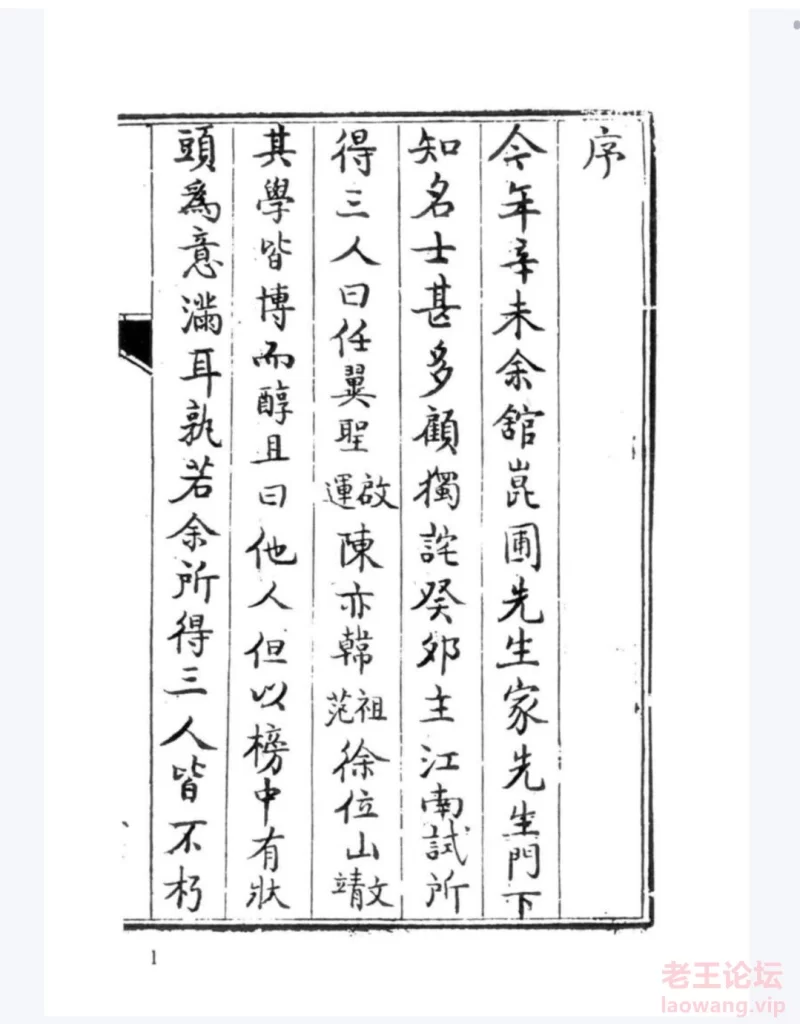 序
今年辛未余舘崑圃先生家先生門下
知名士甚多顧獨詫癸卯主江南試所
得三人曰任翼聖啟運陳亦韓祖范徐位山文靖
其學皆博而醇且曰他人但以榜中有狀
頭爲意滿耳孰若余所得三人皆不朽
1
老王论坛
laowang.vip